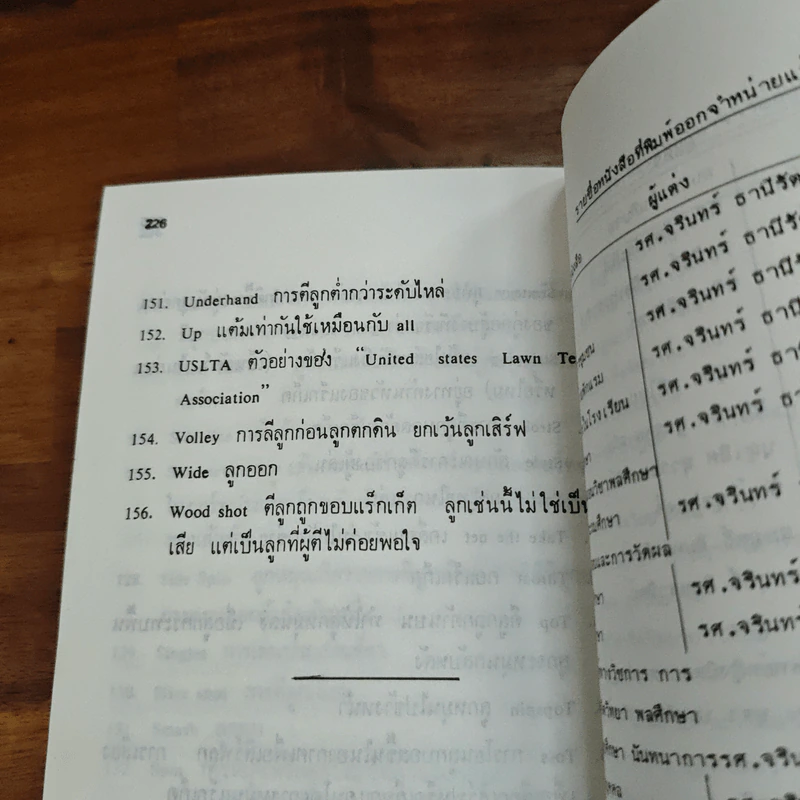 226
151. Underhand การตีลูกต่ำกว่าระดับไหล่
152. Up แต้มเท่ากันใช้เหมือนกับ all
153. USLTA ตัวอย่างของ "United states Lawn Te
Association"
154. Volley การลีลูกก่อนลูกตกดิน ยกเว้นลูกเสิร์ฟ
155. Wide ลูกออก
156. Wood shot ตีลูกถูกขอบแร็กเก็ต ลูกเช่นนี้ไม่ใช่เป็น
เสีย แต่เป็นลูกที่ผู้ตีไม่ค่อยพอใจ
รายชื่อหนังสือที่พิมพ์ออกจำหน่ายแล้
ผู้แต่ง
รศ.จรินทร์ ธานีรัต
รศ.จรินทร์ ธานีรั
รศ.จรินทร์ ธานีร
รศ.จรินทร์ ธานี
รศ.จรินทร์ ธานี
ในโรงเรียน รศ.จรินทร์ ธานี
วิชาพลศึกษา
รศ.จรินทร์
และการวัดผล
รศ.จรินทร์
รศ.จรินทร์
ทางวิชาการ การ
วิทยา พลศึกษา
นันทนาการ รศ.จริน